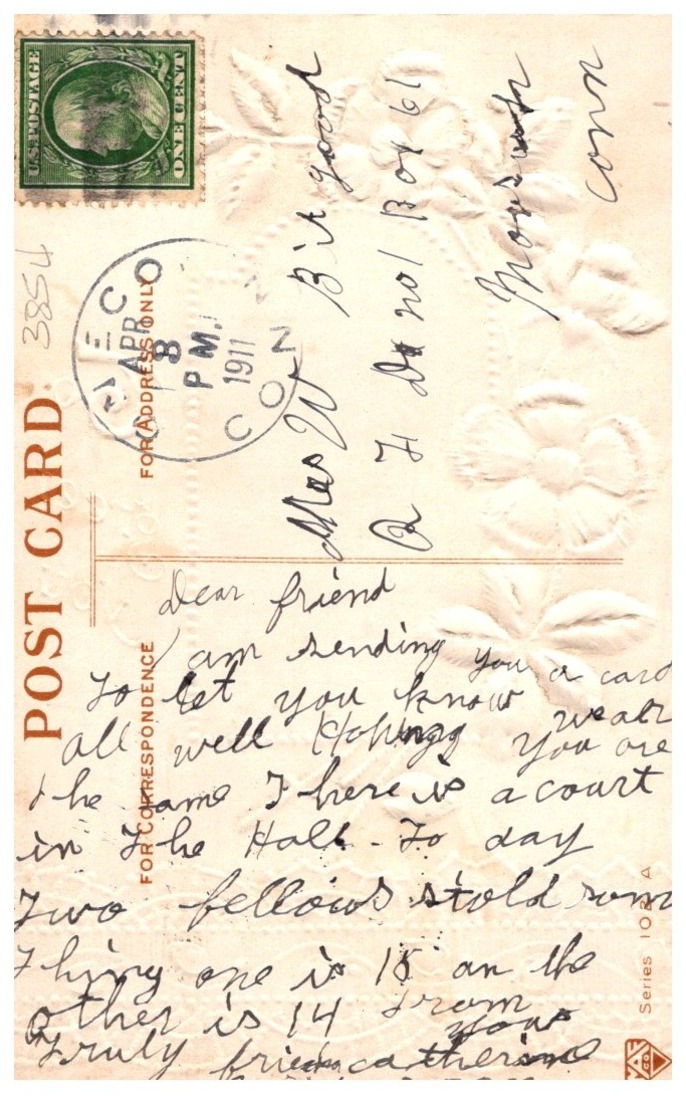 U.S. POSTAGE
ONE CENT
3854
POST CARD
FOR ADDRESS ONLY
APR
8
PM
1911
CON
Mrs W Bitgood
R F D no 1 Box 61
Moosup
Conn
FOR CORRESPONDENCE
Dear friend
I am sending you a card
to let you know we are
all well Hoping you are
the same There is a court
in The Hall To day
Two fellows stold som
Thing one is 15 an the
other is 14 From
your
Truly friend catherine
Series 102 A
CO